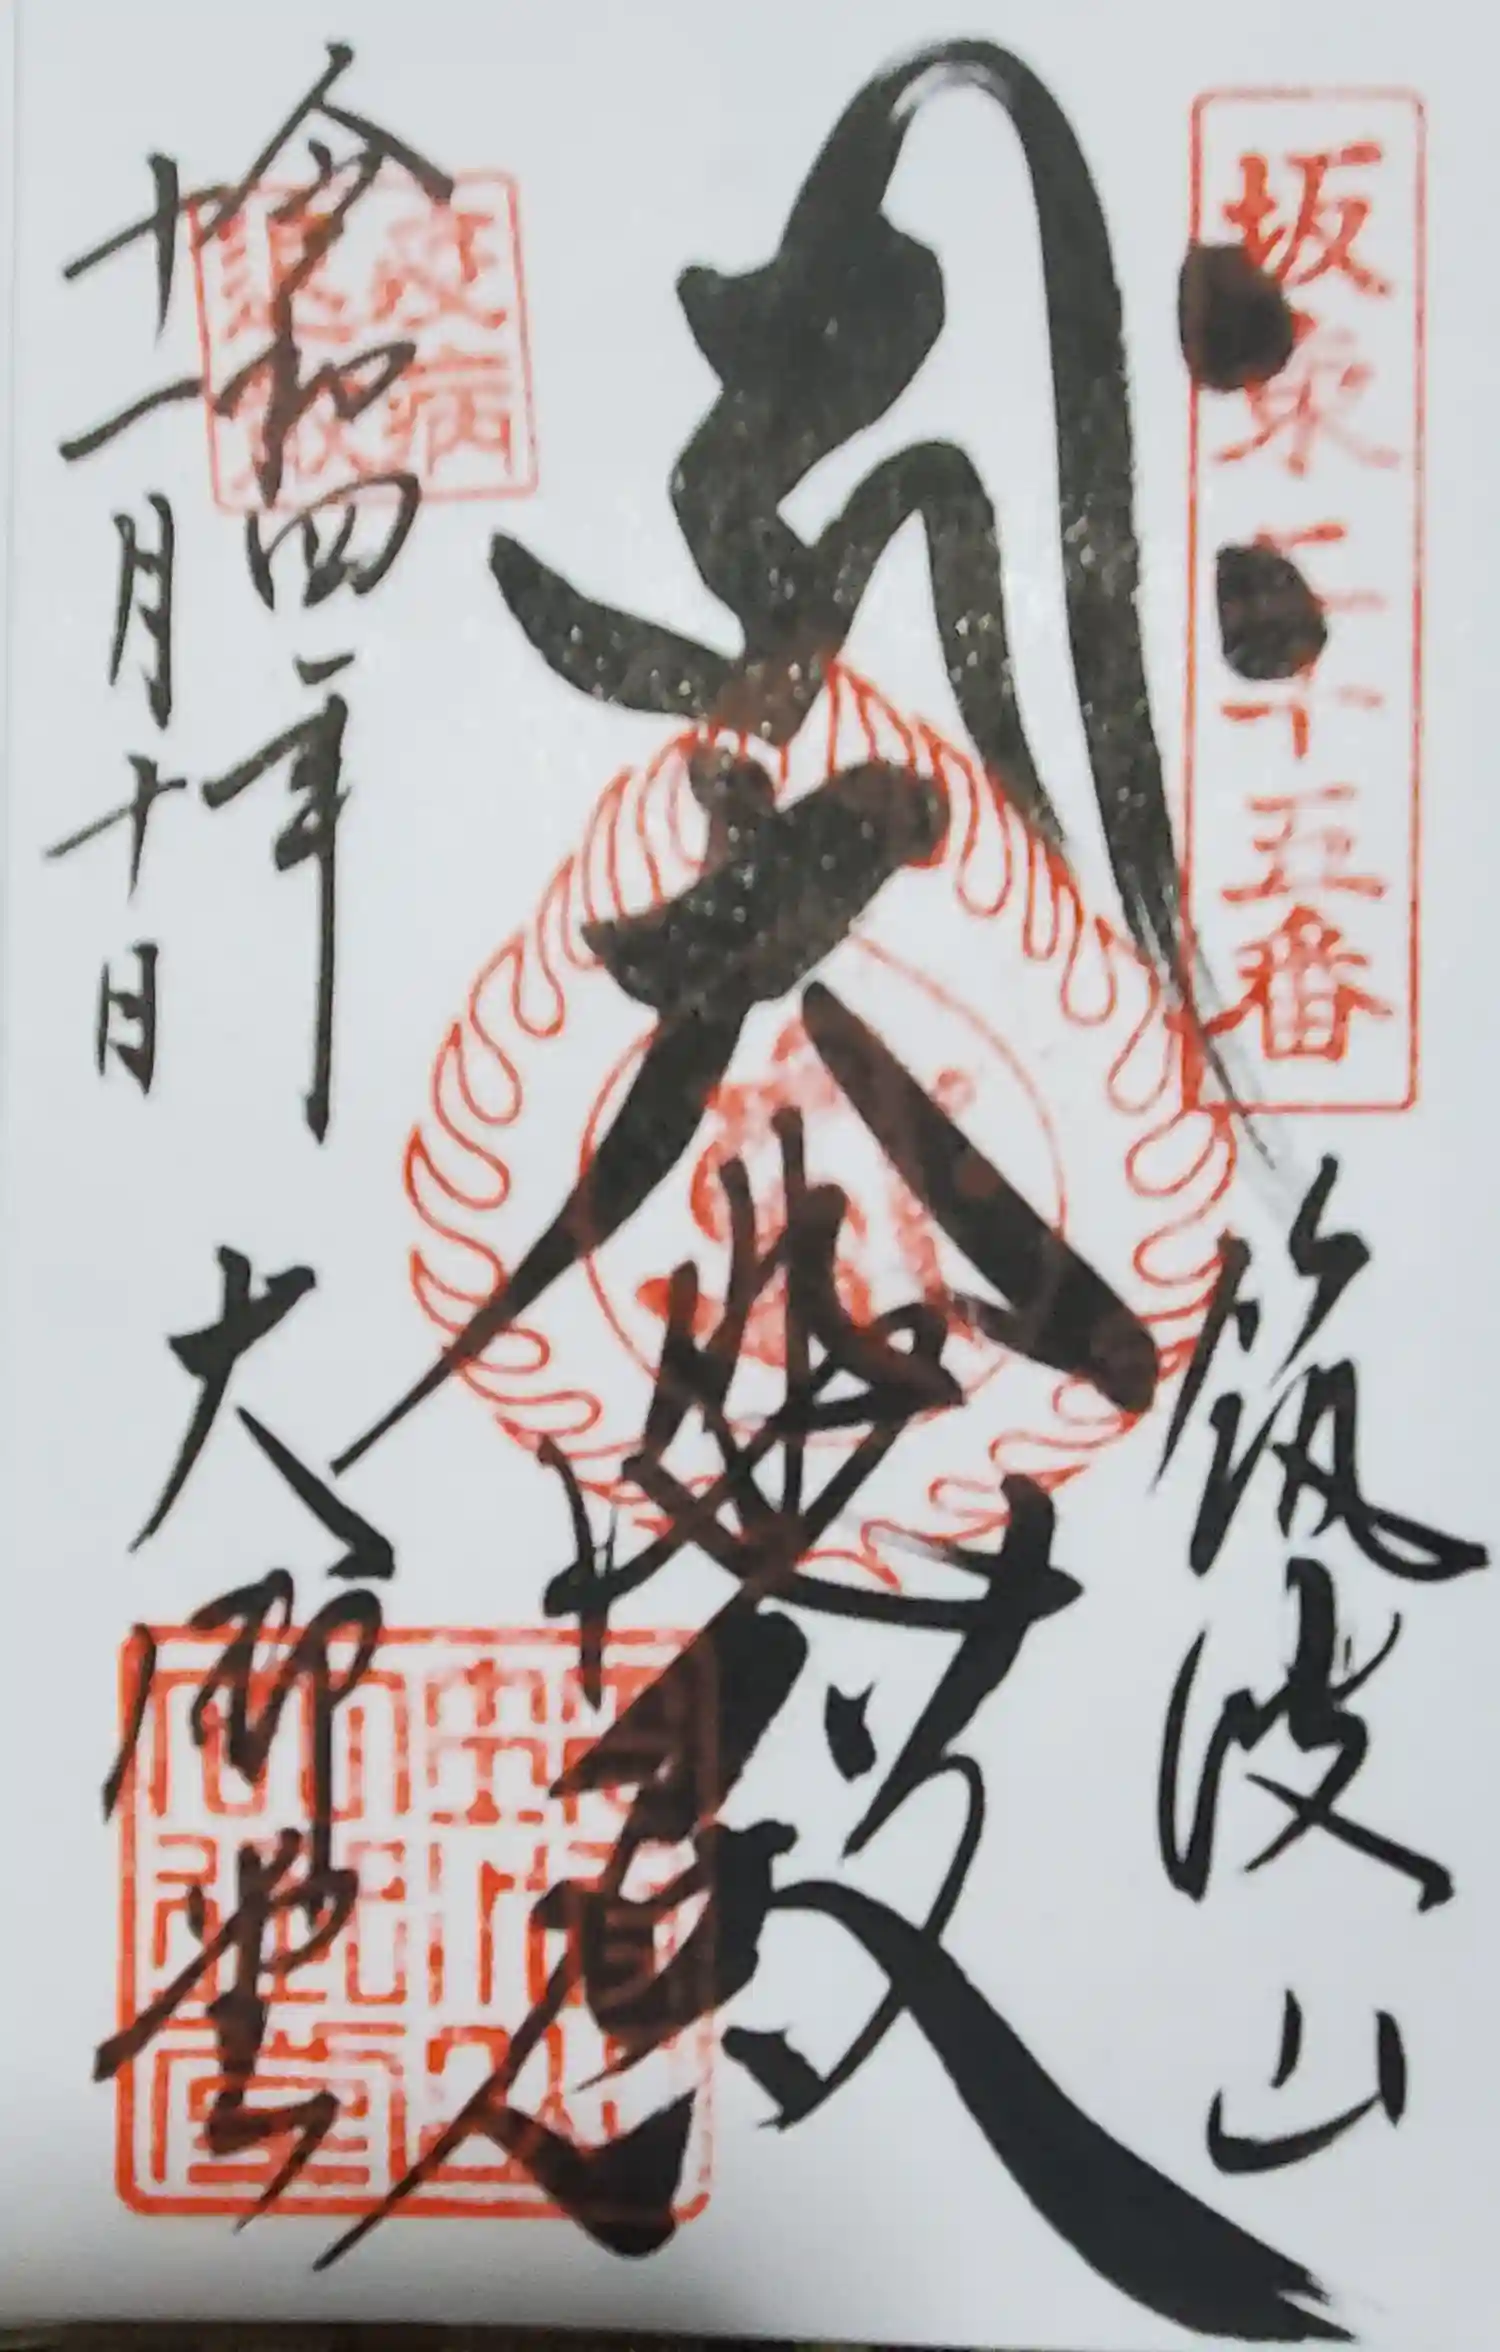 坂東二十五番
筑波山
大悲殿
令和四年
十一月十日
大御堂
疫病
退散